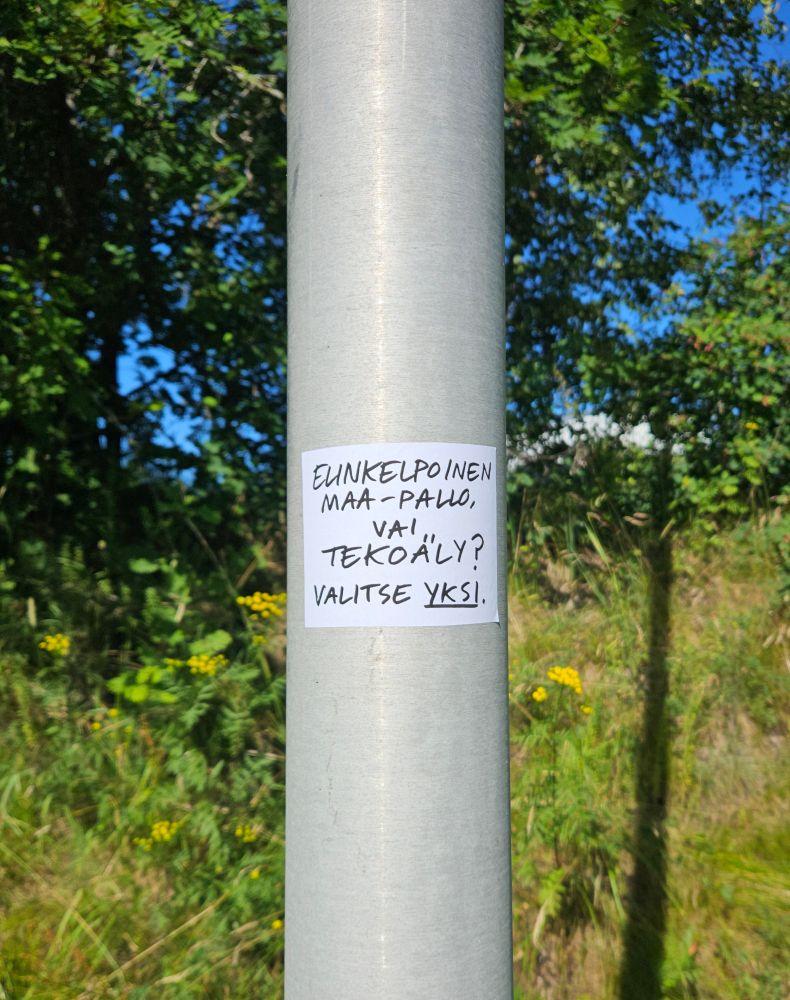 ELINKELPOINEN
MAA-PALLO,
VAI
TEKOÄLY?
VALITSE YKSI.